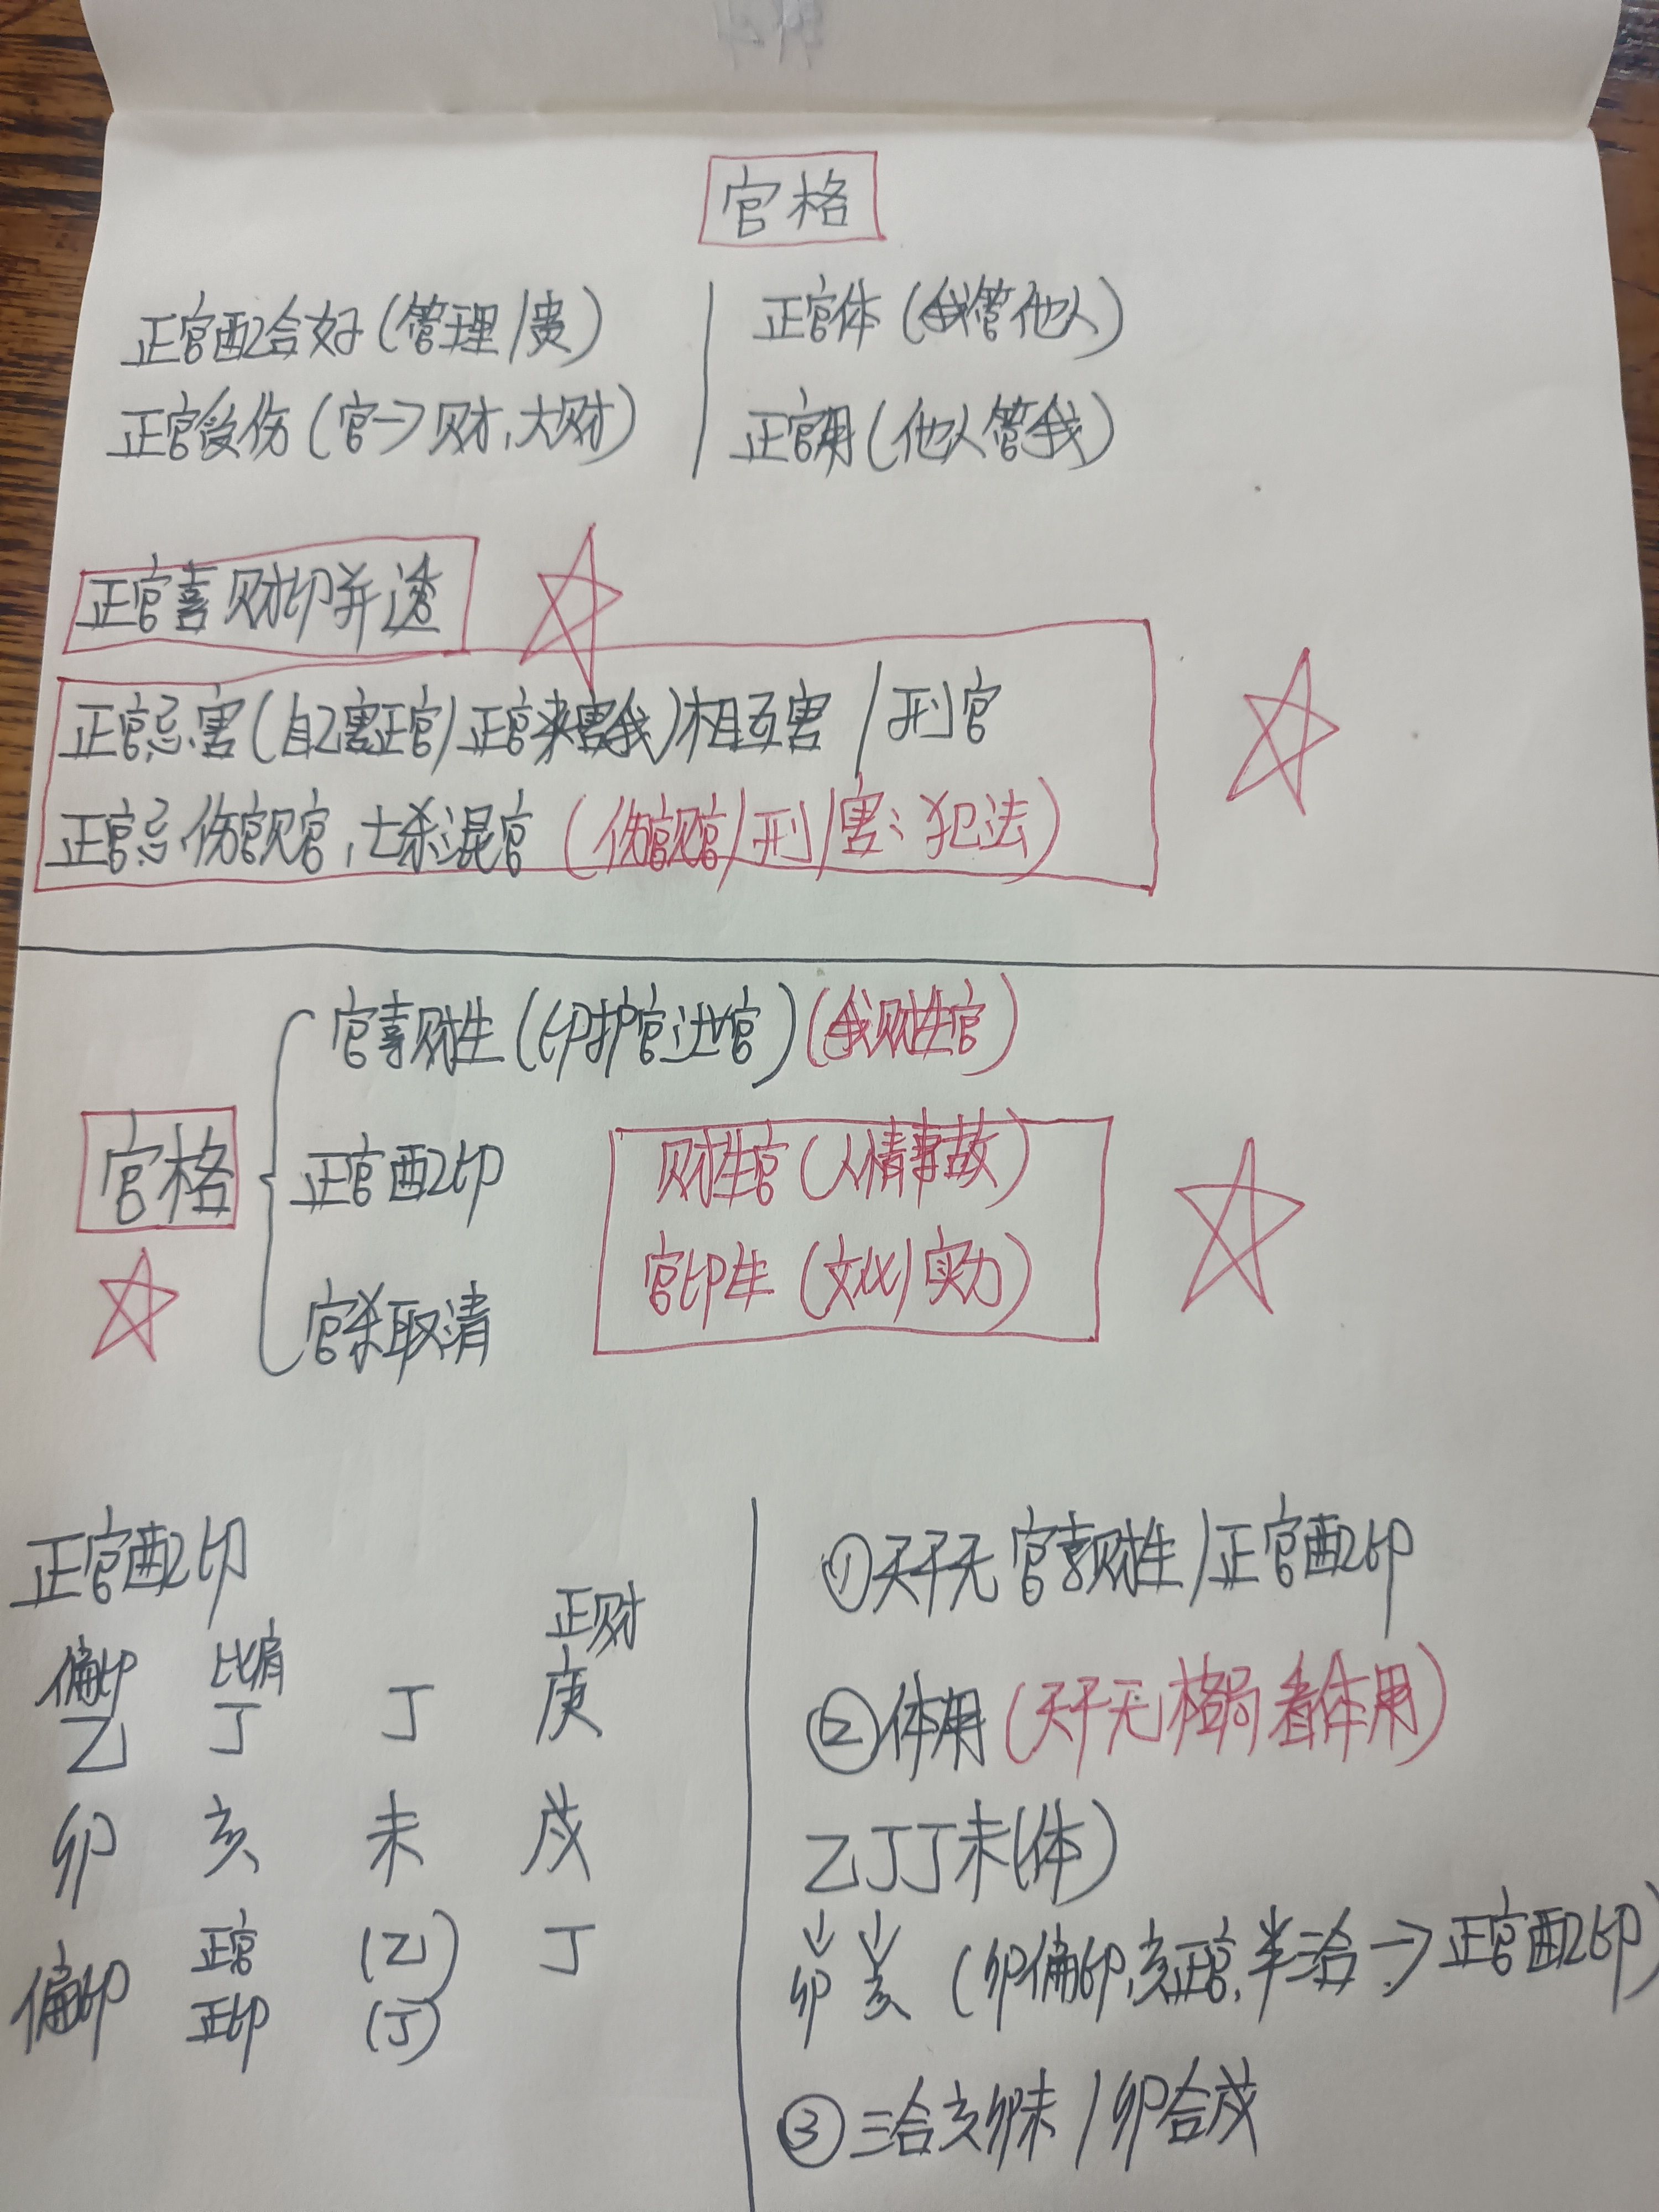 官格
正官配合好(管理/贵)
正官受伤(官→财,大财)
正官体(我管他人)
正官用(他人管我)
正官喜财印并透
正官忌害(自己害正官/正官来害我)相互害/刑官
正官忌伤官见官,七杀混官(伤官见官/刑/害:犯法)
官格
官喜财生(印护官,进官)(我财生官)
正官配印
官杀取清
财生官(人情事故)
官印生(文化/实力)
正官配印
正财
偏印 比肩
乙 丁 丁 庚
卯 亥 未 戌
偏印 正官 (乙) 丁
正印 (丁)
①天干无官喜财生/正官配印
②体用(天干无格局看体用)
乙丁丁未(体)
↓ ↓
卯 亥 (卯偏印,亥正官,半合→正官配印)
③三合亥卯未/卯合戌